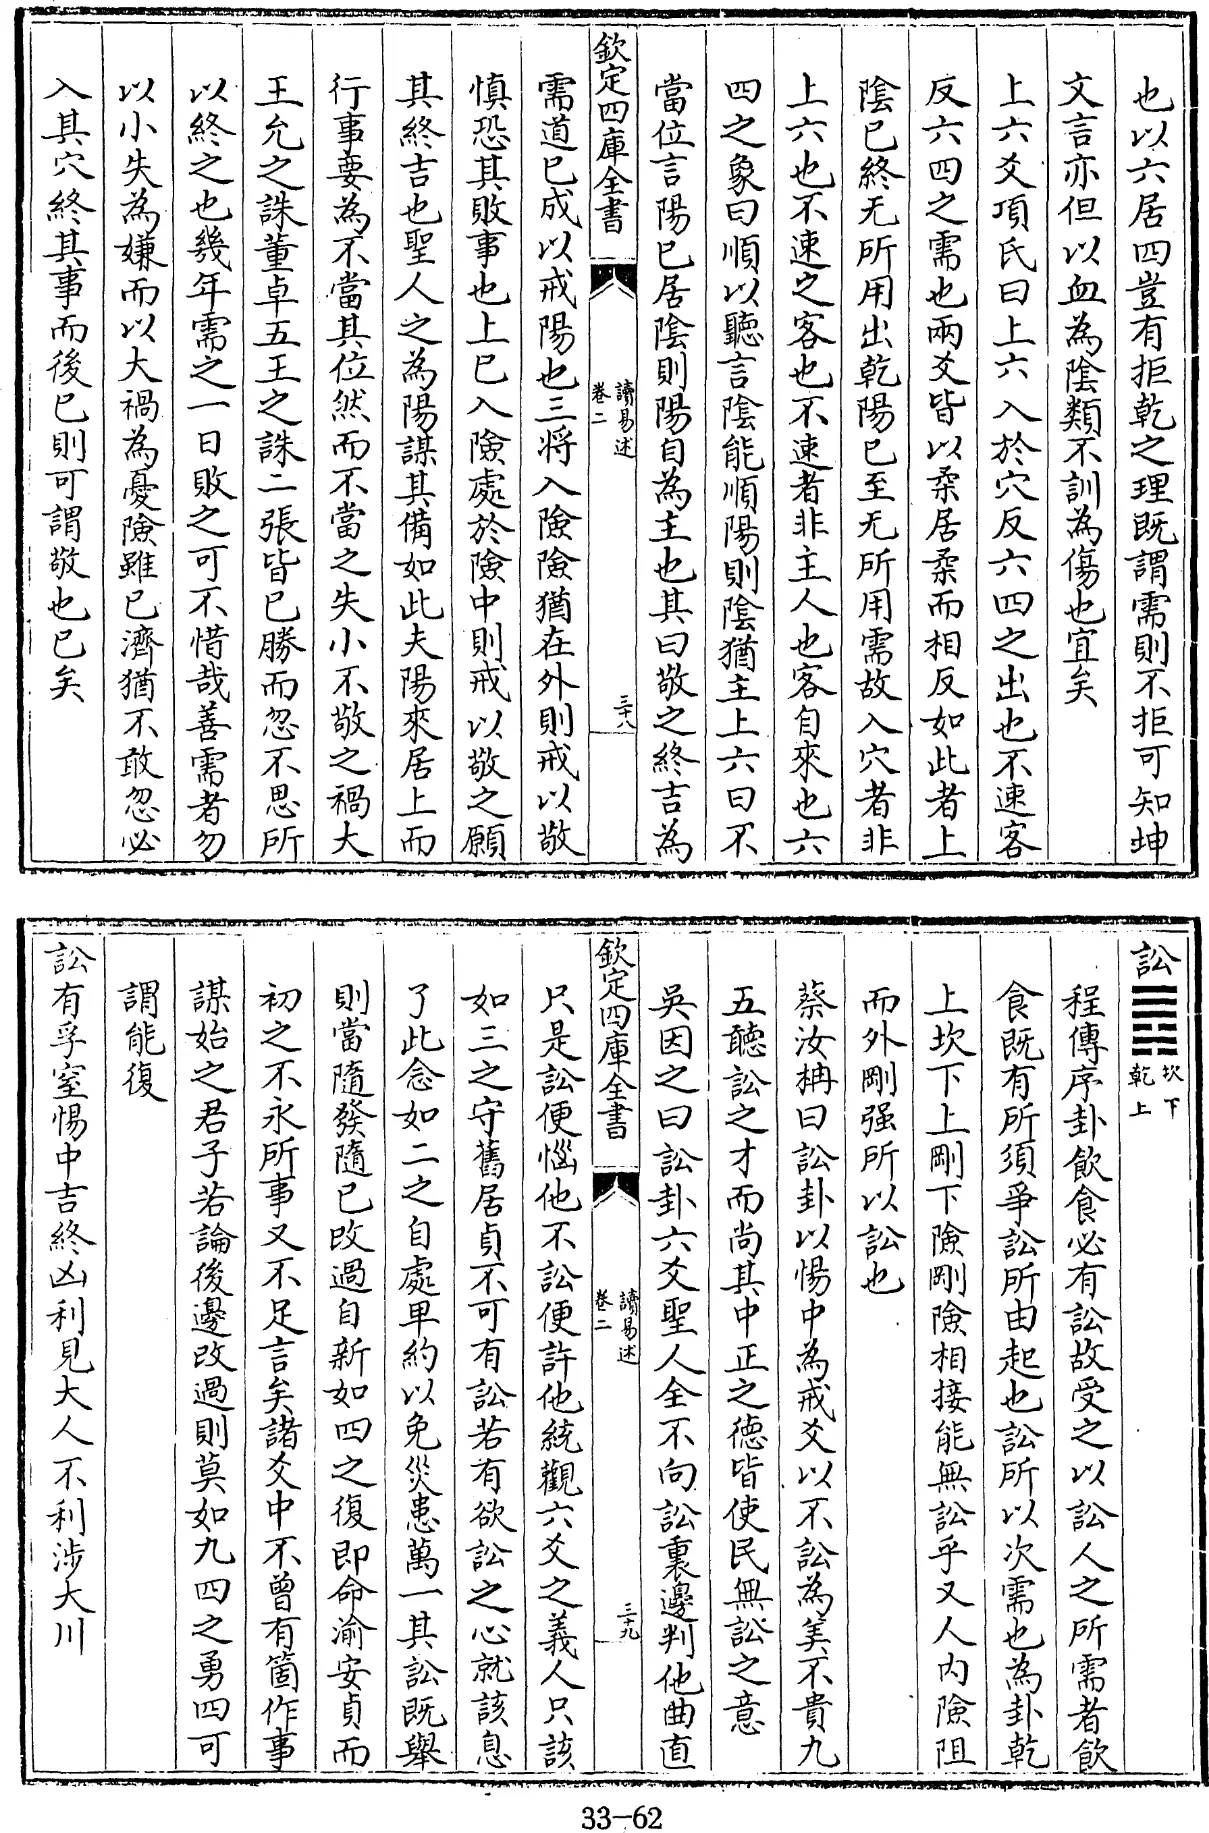 也以六居四豈有拒乾之理既謂需則不拒可知坤
文言亦但以血為陰類不訓為傷也宜矣
上六爻項氏曰上六入於穴反六四之出也不速客
反六四之需也兩爻皆以柔居柔而相反如此者上
陰已終无所用出乾陽已至无所用需故入穴者非
上六也不速之客也不速者非主人也客自來也六
四之象曰順以聽言陰能順陽則陰猶主上六曰不
當位言陽已居陰則陽自為主也其曰敬之終吉為
欽定四庫全書
讀易述
卷二
三十八
需道已成以戒陽也三将入險險猶在外則戒以敬
慎恐其敗事也上已入險處於險中則戒以敬之願
其終吉也聖人之為陽謀其備如此夫陽來居上而
行事要為不當其位然而不當之失小不敬之禍大
王允之誅董卓五王之誅二張皆已勝而忽不思所
以終之也幾年需之一日敗之可不惜哉善需者勿
以小失為嫌而以大禍為憂險雖已濟猶不敢忽必
入其穴終其事而後已則可謂敬也已矣
訟䷅坎下
乾上
程傳序卦飲食必有訟故受之以訟人之所需者飲
食既有所須爭訟所由起也訟所以次需也為卦乾
上坎下上剛下險剛險相接能無訟乎又人内險阻
而外剛强所以訟也
蔡汝柟曰訟卦以惕中為戒爻以不訟為美不貴九
五聽訟之才而尚其中正之德皆使民無訟之意
吳因之曰訟卦六爻聖人全不向訟裏邊判他曲直
欽定四庫全書
讀易述
卷二
三十九
只是訟便惱他不訟便許他統觀六爻之義人只該
如三之守舊居貞不可有訟若有欲訟之心就該息
了此念如二之自處卑約以免災患萬一其訟既舉
則當隨發隨已改過自新如四之復即命渝安貞而
初之不永所事又不足言矣諸爻中不曾有箇作事
謀始之君子若論後邊改過則莫如九四之勇四可
謂能復
訟有孚窒惕中吉終凶利見大人不利涉大川
33-62